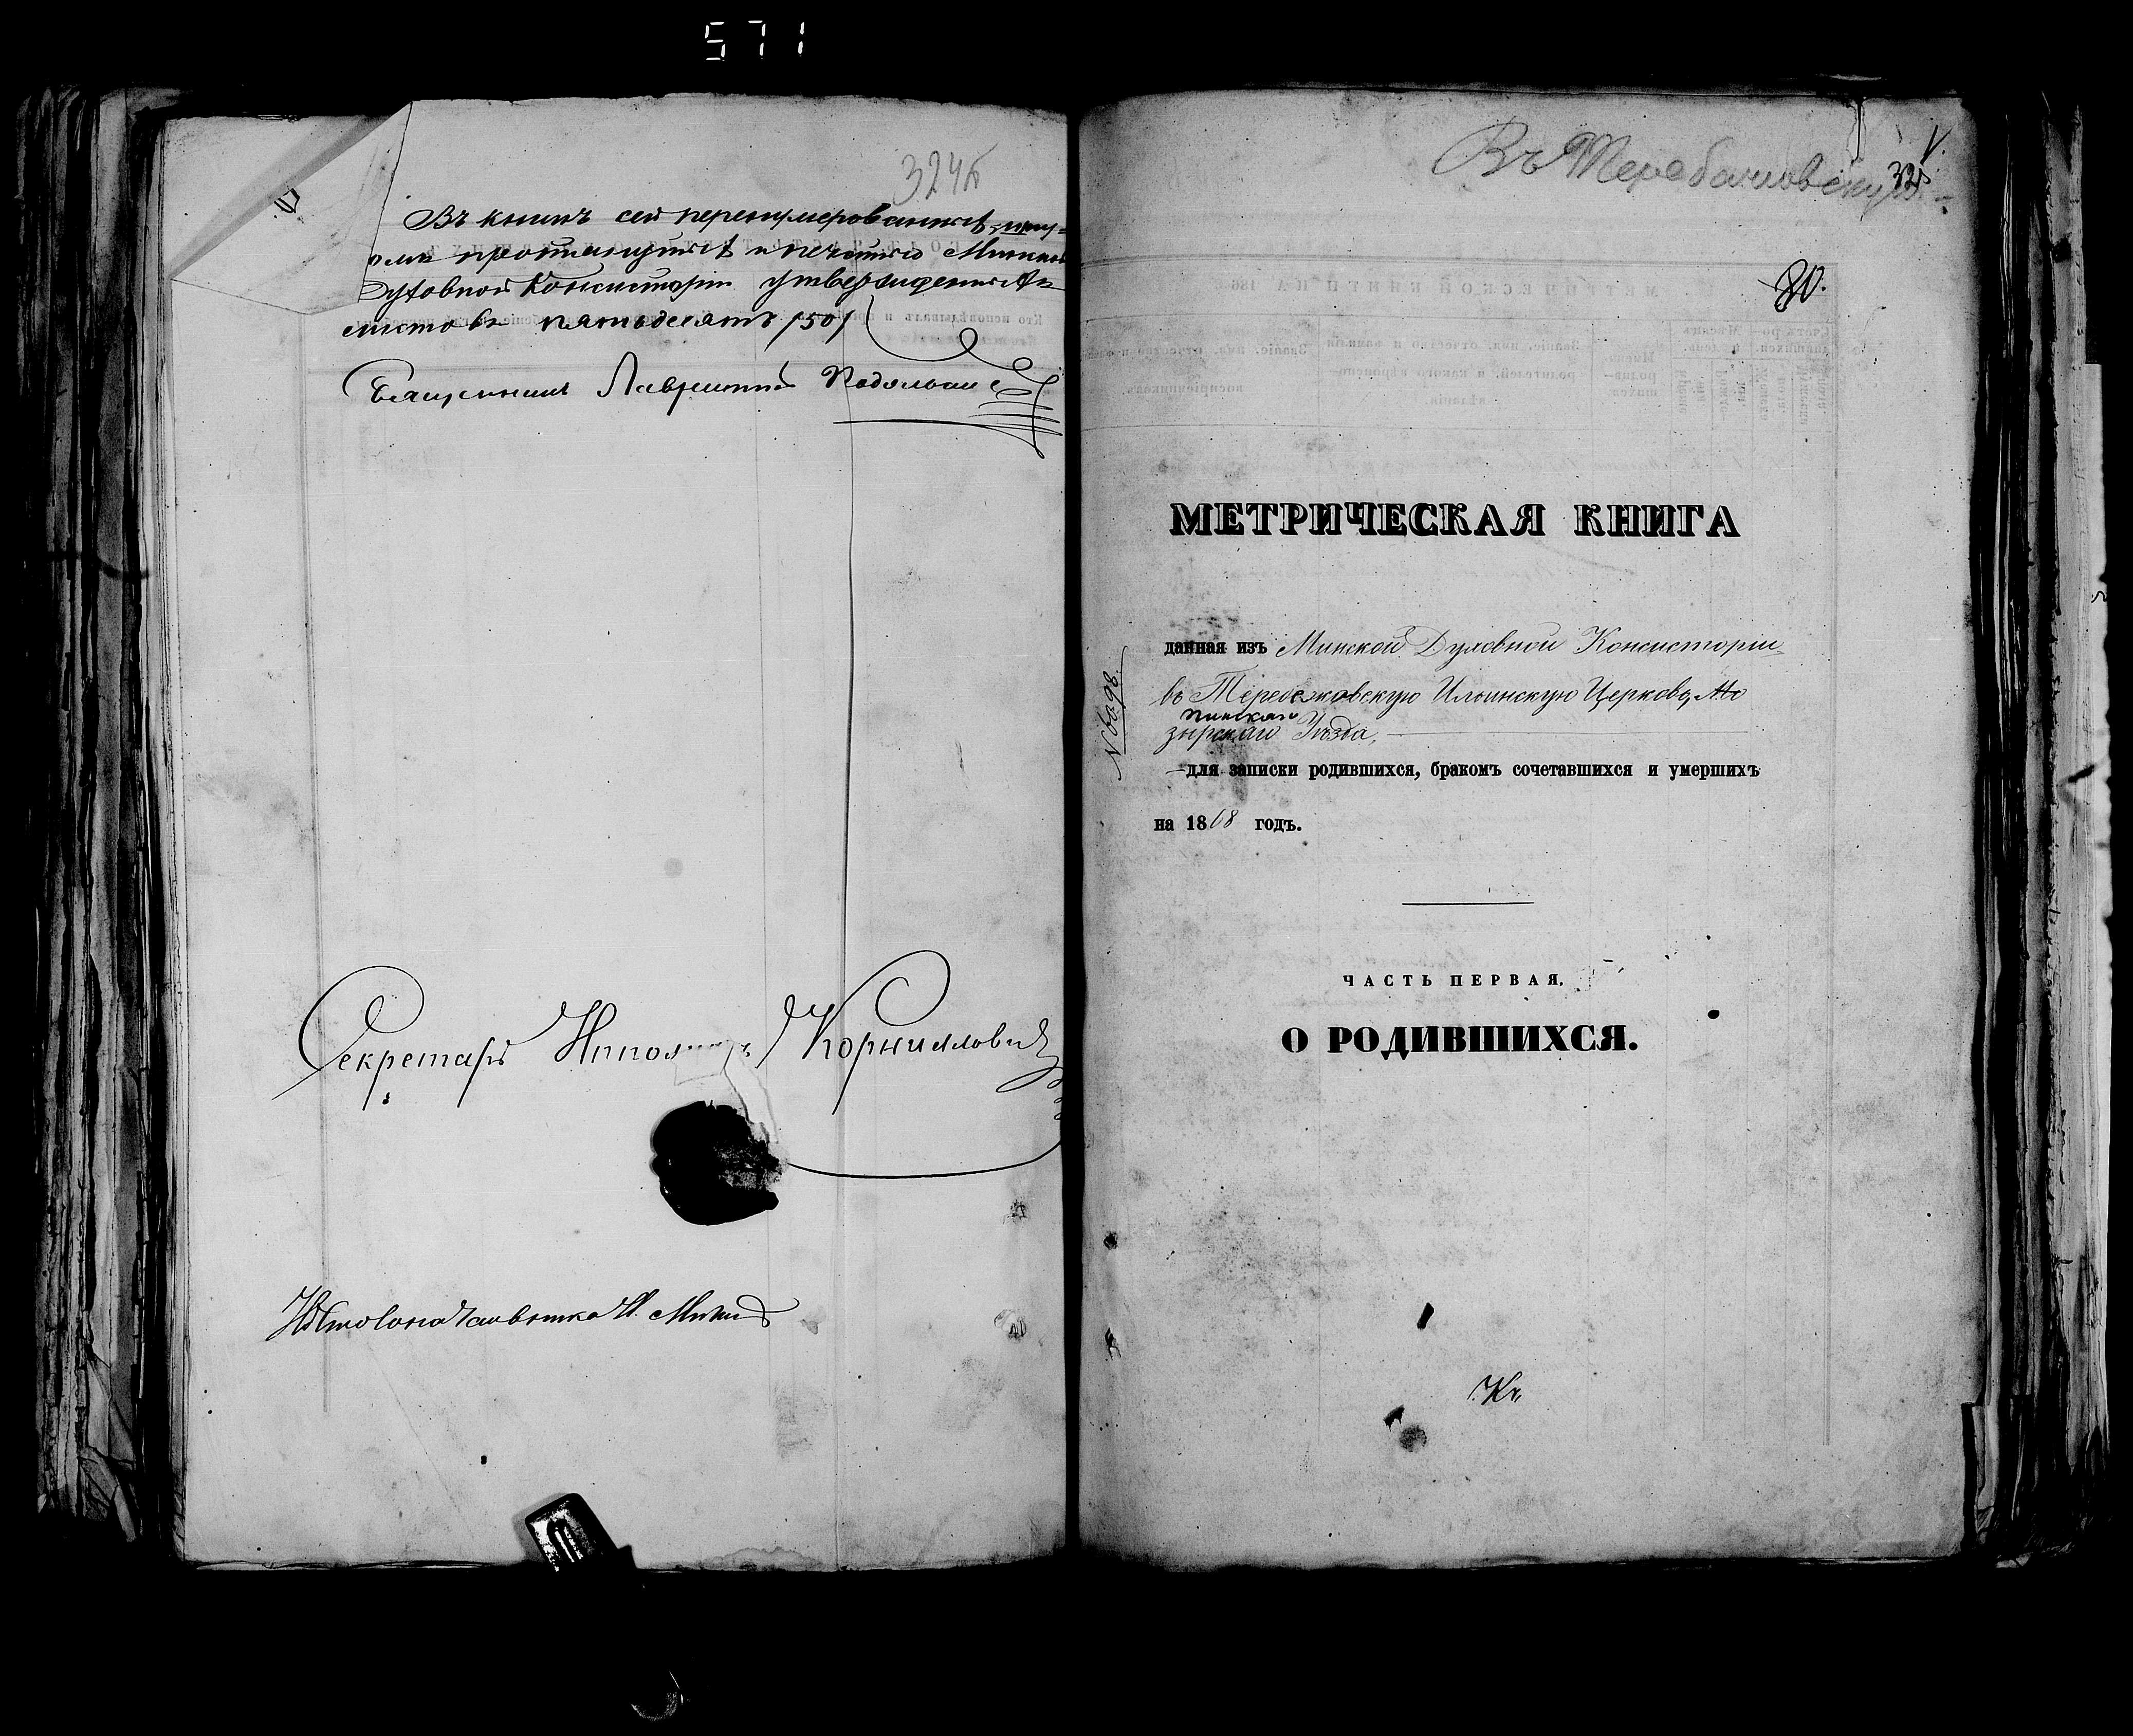 571
324б
Въ книгѣ сей перенумерованныхъ, шну-
ромъ протянутыхъ и печатью Минской
Духовной Консисторіи утвержденныхъ
листовъ пятьдесятъ /50/
Священникъ Лаврентій
Секретарь Ипполитъ Корниловичъ
Въ
325
80.
МЕТРИЧЕСКАЯ КНИГА
данная изъ Минской Духовной Консисторіи
въ Теребежовскую Ильинскую Церковь, Мо
Пинскаго
зырскаго Уѣзда,
для записки родившихся, бракомъ сочетавшихся и умершихъ
на 1868 годъ.
ЧАСТЬ ПЕРВАЯ.
О РОДИВШИХСЯ.